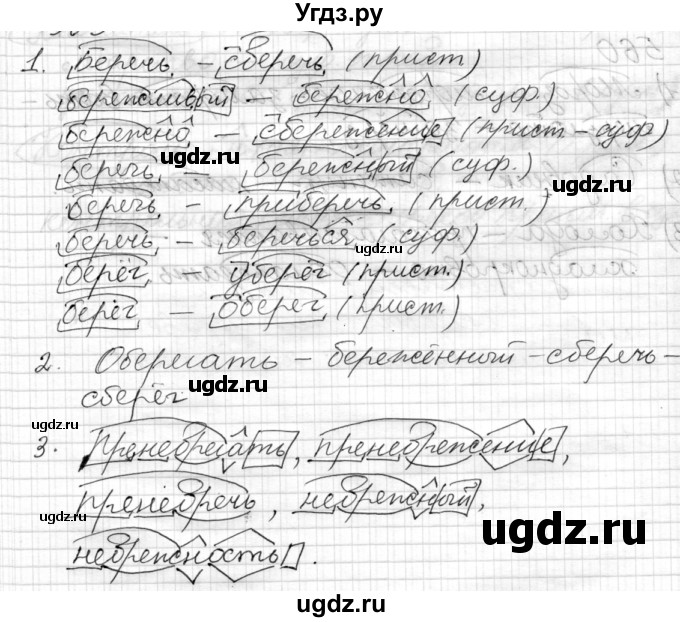 Угдз.ру
1. Беречь – сберечь (прист)
бережливый – бережно (суф)
бережно – сбережение (прист – суф)
беречь – бережный (суф.)
беречь – приберечь (прист.)
беречь – беречься (суф)
берёг – уберёг (прист.)
берёг – оберег (прист.)
2. Оберегать – бережённый – сберечь –
сберёг
3. Пренебрегать, пренебрежение,
пренебречь, небрежный,
небрежность.
ugdz.ru
ugdz.ru
ugdz.ru
ugdz.ru
ugdz.ru
ugdz.ru
ugdz.ru
ugdz.ru
ugdz.ru
ugdz.ru